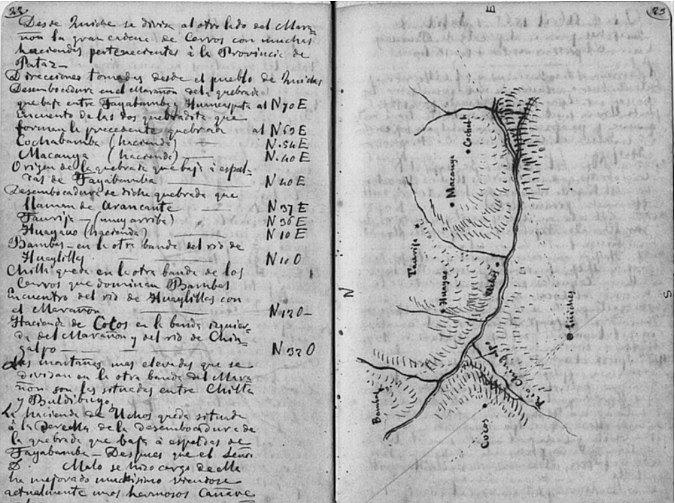 23
Desde Quiche se divisa al otro lado del Mara-
ñon la gran cadena de Cerros con muchas
haciendas pertenecientes à la Provincia de
Pataz—
Direcciones tomadas desde el pueblo de Quiches
Desembocadura en el Marañon de la quebrada
que baja entre Tayabamba y al N70E
Encuento de las dos quebraditas que
forman la precedente quebrada al N69E
Cochabamba (hacienda) N.54E
Macanya (hacienda) N.40E
Origen de la quebrada que baja à espal-
das de Tayabamba N40E
Desembocadura de dicha quebrada que
llaman de Arancante N37E
Taurija — (muy arriba) N36E
Huayao (hacienda) N10E
Bambas — en la otra banda del rio de
Huaylillas N10O
Chilli queda en la otra banda de los
Cerros que dominan Bambas
Encuentro del rio de Huaylillas con
el Marañon N12O—
Hacienda de Cocos en la banda izquier-
da del Marañon y del rio de Chin-
galpo N32O
Las montañas mas elevadas que se
divisan en la otra banda del Mara-
ñon son las situadas entre Chilli
y Buldibuyo.
La hacienda de Uchos queda situada
à la derecha de la desembocadura de
la quebrada que baja à espaldas de
Tayabamba — Despues que el Señor
D Malo se hizo cargo de ella
ha mejorado muchisimo viendose
actualmente unos hermosos Cañave
25
E
N
S
Cochab
Macanya
Taurija
Huayao
Uchos
Quiches
Rio Chingalpo
Bambas
Cocos